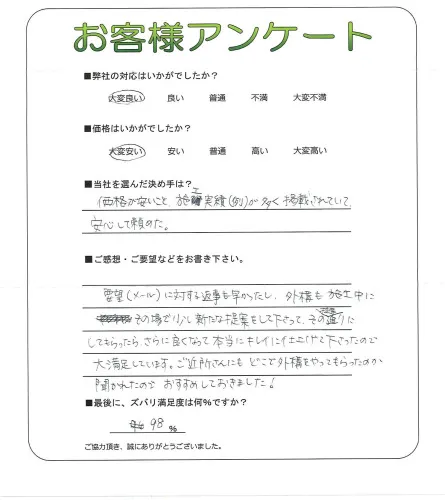 お客様アンケート
■弊社の対応はいかがでしたか?
大変良い 良い 普通 不満 大変不満
■価格はいかがでしたか?
大変安い 安い 普通 高い 大変高い
■当社を選んだ決め手は?
価格が安いこと、施工実績(例)が多く掲載されていて
安心して頼めた。
■ご感想・ご要望などをお書き下さい。
要望(メール)に対する返事も早かったし、外構も施工中に
その場で少し新たな提案をして下さって、その通りに
してもらったら、さらに良くなって本当にキレイに仕上げて下さったので
大満足しています。ご近所さんにもどこで外構をやってもらったのか
聞かれたので おすすめしておきました!
■最後に、ズバリ満足度は何%ですか?
98 %
ご協力頂き、誠にありがとうございました。